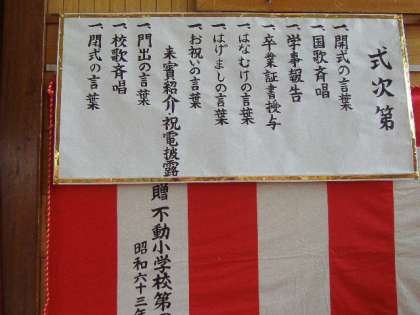 式次第
一、開式の言葉
一、国歌斉唱
一、学事報告
一、卒業証書授与
一、はなむけの言葉
一、はげましの言葉
一、お祝いの言葉
来賓紹介 祝電披露
一、門出の言葉
一、校歌斉唱
一、閉式の言葉
贈 不動小学校第
昭和六十三年